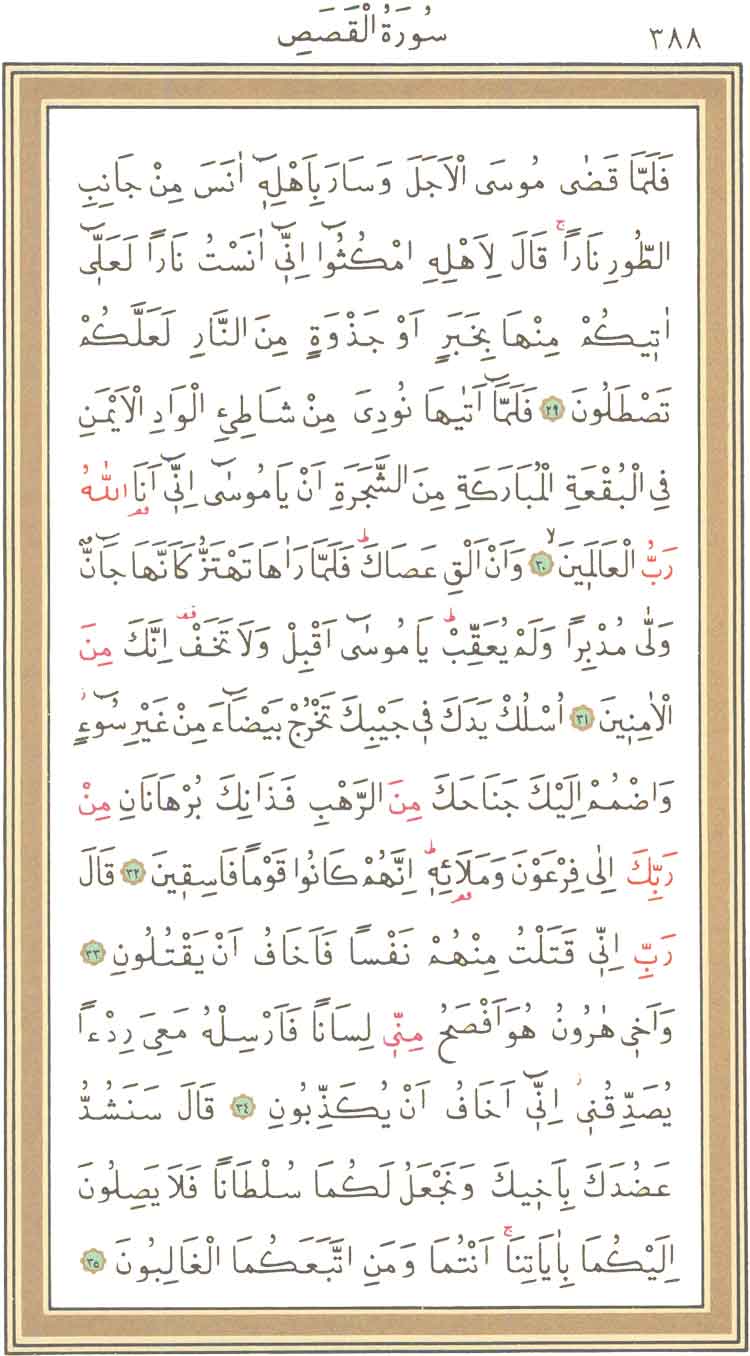 سُورَةُ الْقَصَصِ ٣٨٨
فَلَمَّا قَضٰى مُوسَى الْاَجَلَ وَسَارَ بِاَهْلِهٖٓ اٰنَسَ مِنْ جَانِبِ
الطُّورِ نَاراًۚ قَالَ لِاَهْلِهِ امْكُثُٓوا اِنّٖٓي اٰنَسْتُ نَاراً لَعَلّٖٓي
اٰتٖيكُمْ مِنْهَا بِخَبَرٍ اَوْ جَذْوَةٍ مِنَ النَّارِ لَعَلَّكُمْ
تَصْطَلُونَ ﴿٢٩﴾ فَلَمَّٓا اَتٰيهَا نُودِيَ مِنْ شَاطِئِ الْوَادِ الْاَيْمَنِ
فِي الْبُقْعَةِ الْمُبَارَكَةِ مِنَ الشَّجَرَةِ اَنْ يَا مُوسٰٓى اِنّٖٓي اَنَا اللّٰهُ
رَبُّ الْعَالَمٖينَۙ ﴿٣٠﴾ وَاَنْ اَلْقِ عَصَاكَۜ فَلَمَّا رَاٰهَا تَهْتَزُّ كَاَنَّهَا جَٓانٌّ
وَلّٰى مُدْبِراً وَلَمْ يُعَقِّبْۜ يَا مُوسٰٓى اَقْبِلْ وَلَا تَخَفْ۠ اِنَّكَ مِنَ
الْاٰمِنٖينَ ﴿٣١﴾ اُسْلُكْ يَدَكَ فٖي جَيْبِكَ تَخْرُجْ بَيْضَٓاءَ مِنْ غَيْرِ سُٓوءٍۘ
وَاضْمُمْ اِلَيْكَ جَنَاحَكَ مِنَ الرَّهْبِ فَذَانِكَ بُرْهَانَانِ مِنْ
رَبِّكَ اِلٰى فِرْعَوْنَ وَمَلَا۬ئِهٖۜ اِنَّهُمْ كَانُوا قَوْماً فَاسِقٖينَ ﴿٣٢﴾ قَالَ
رَبِّ اِنّٖي قَتَلْتُ مِنْهُمْ نَفْساً فَاَخَافُ اَنْ يَقْتُلُونِ ﴿٣٣﴾
وَاَخٖي هٰرُونُ هُوَ اَفْصَحُ مِنّٖي لِسَاناً فَاَرْسِلْهُ مَعِيَ رِدْءاً
يُصَدِّقُنٖيۘ اِنّٖٓي اَخَافُ اَنْ يُكَذِّبُونِ ﴿٣٤﴾ قَالَ سَنَشُدُّ
عَضُدَكَ بِاَخٖيكَ وَنَجْعَلُ لَكُمَا سُلْطَاناً فَلَا يَصِلُونَ
اِلَيْكُمَا بِاٰيَاتِنَاۚ اَنْتُمَا وَمَنِ اتَّبَعَكُمَا الْغَالِبُونَ ﴿٣٥﴾